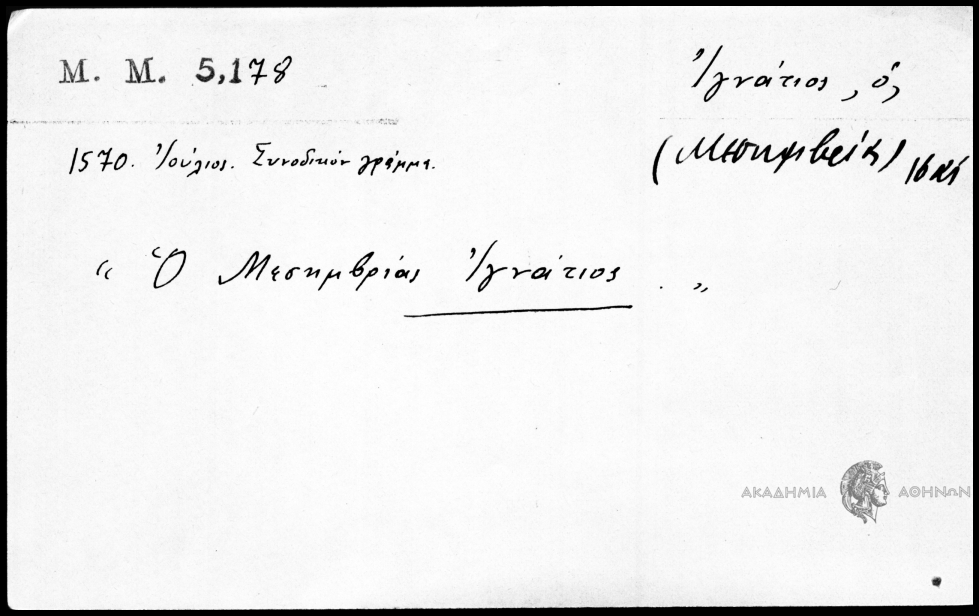 M. M. 5,178
Ἰγνάτιος, ὁ,
(Μεσημβρίας) 16 αἰ
1570. Ἰούλιος. Συνοδικόν γράμμα.
“ Ὁ Μεσημβρίας Ἰγνάτιος . „
ΑΚΑΔΗΜΙΑ ΑΘΗΝΩΝ